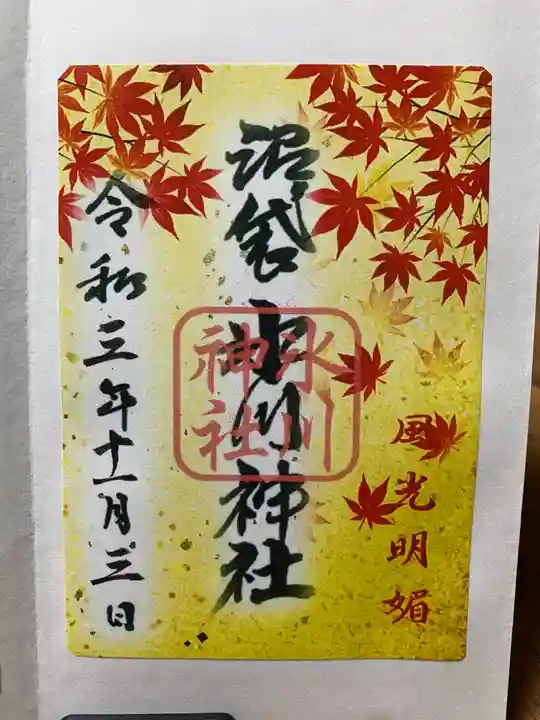 風光明媚
沼袋氷川神社
氷川
神社
令和三年十一月三日